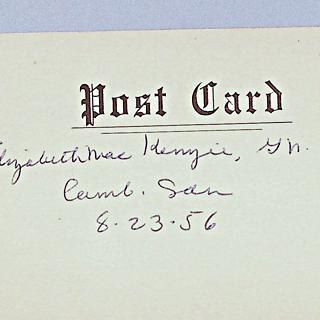 Post Card
Elizabeth Mac Kenzie, Gn.
Camb. San
8-23-56